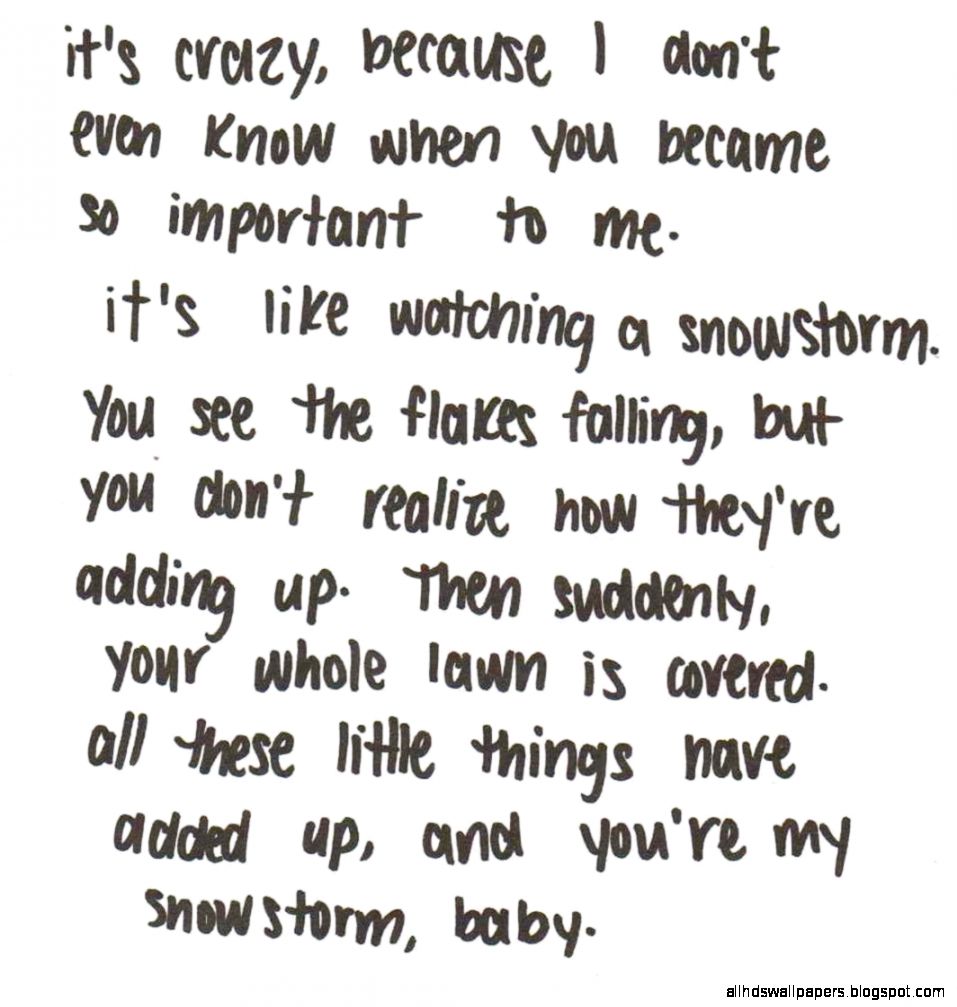 it's crazy, because I don't
even know when you became
so important to me.
it's like watching a snowstorm.
You see the flakes falling, but
you don't realize how they're
adding up. Then suddenly,
your whole lawn is covered.
all these little things have
added up, and you're my
snowstorm, baby.
allhdswallpapers.blogspot.com